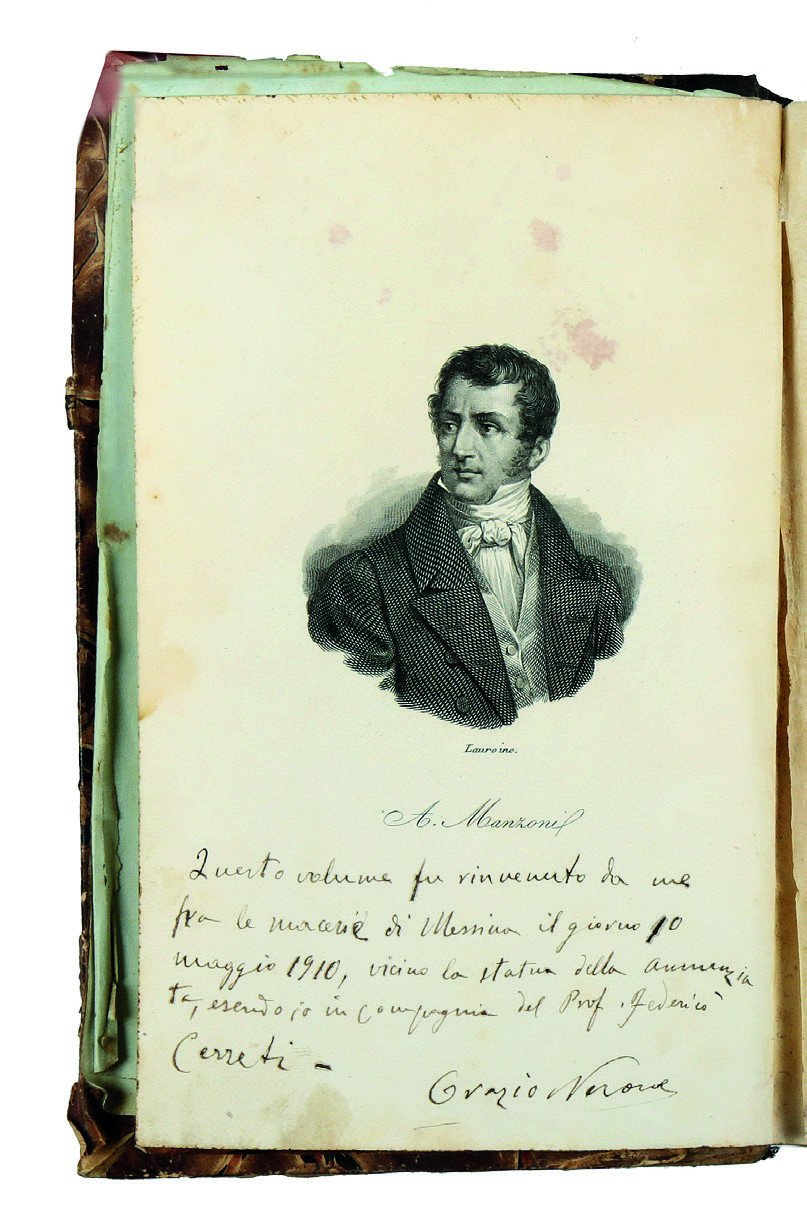 Lauro inc.
A. Manzoni
Questo volume fu rinvenuto da me
fra le macerie di Messina il giorno 10
maggio 1910, vicino la statua della Annunzia
ta, esendo io in compagnia del Prof. Federico
Cerreti -
Orazio Nerone